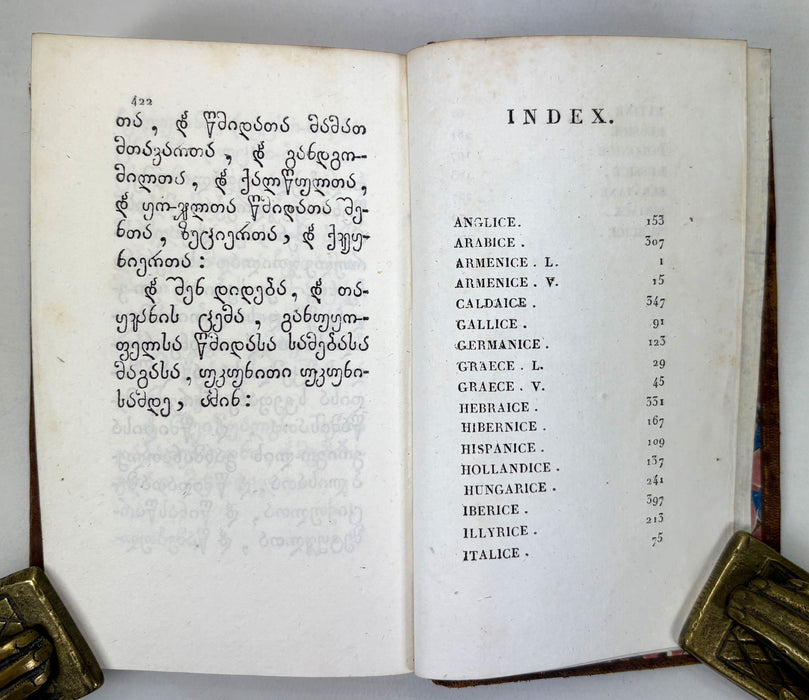 422
თა , დ̃ წმიდათა მამათ
მთავართა , დ̃ განდგო-
მილთა, დ̃ ქალწულთა,
დ̃ ყო-ვლთა წმიდათა შე-
ნთა, ზეციერთა, დ̃ ქუეყ-
ნიერთა :
დ̃ შენ დიდება, დ̃ თა-
ყვანის ცემა , განუყო-
ფელსა წმიდასა სამებასა
მაგასა, უკუნითი უკუნი-
სამდე, ამინ:
INDEX.
ANGLICE. 153
ARABICE . 307
ARMENICE . L. 1
ARMENICE . V. 15
CALDAICE . 347
GALLICE . 91
GERMANICE . 123
GRAECE . L. 29
GRAECE . V. 45
HEBRAICE . 331
HIBERNICE . 167
HISPANICE . 109
HOLLANDICE . 137
HUNGARICE . 241
IBERICE . 397
ILLYRICE . 213
ITALICE . 75